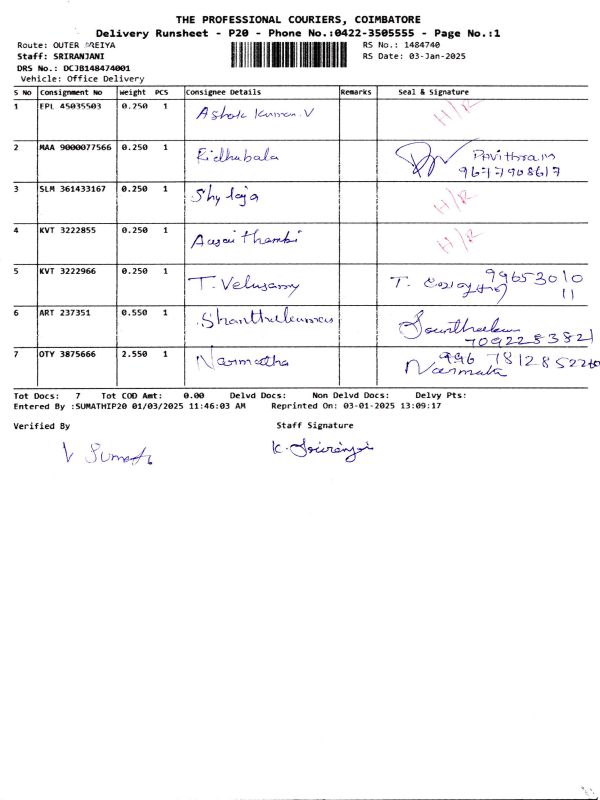 THE PROFESSIONAL COURIERS, COIMBATORE
Delivery Runsheet - P20 - Phone No.:0422-3505555 - Page No.:1
Route: OUTER PREIYA RS No.: 1484740
Staff: SRIRANJANI RS Date: 03-Jan-2025
DRS No.: DCJB148474001
Vehicle: Office Delivery
S No Consignment No Weight PCS Consignee Details Remarks Seal & Signature
1 EPL 45035503 0.250 1 Ashok Kumar. V H/R
2 MAA 9000077566 0.250 1 Ridhubala Pavithram
9677908617
3 SLM 361433167 0.250 1 Shylaja H/R
4 KVT 3222855 0.250 1 Aasaithambi H/R
5 KVT 3222966 0.250 1 T. Velusamy T. 99653010
11
6 ART 237351 0.550 1 Shanthakumar
7092283821
7 OTY 3875666 2.550 1 Narmatha 996 7812852260
Narmata
Tot Docs: 7 Tot COD Amt: 0.00 Delvd Docs: Non Delvd Docs: Delvy Pts:
Entered By :SUMATHIP20 01/03/2025 11:46:03 AM Reprinted On: 03-01-2025 13:09:17
Verified By Staff Signature
V Sumathi K. Sriranjani